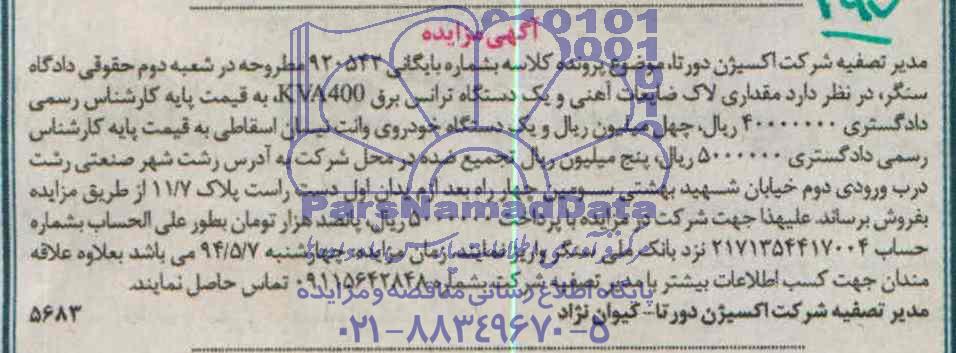 ۲۹۵
آگهی مزایده
مدیر تصفیه شرکت اکسیژن دور تا، موضوع پرونده کلاسه بشماره بایگانی ۹۲۰۵۴۲ مطروحه در شعبه دوم حقوقی دادگاه
سنگر، در نظر دارد مقداری لاک ضایعات آهنی و یک دستگاه ترانس برق KVA400، به قیمت پایه کارشناس رسمی
دادگستری ۴۰۰۰۰۰۰۰ ریال، چهل میلیون ریال و یک دستگاه خودروی وانت نیسان اسقاطی به قیمت پایه کارشناس
رسمی دادگستری ۵۰۰۰۰۰۰ ریال، پنج میلیون ریال تجمیع شده در محل شرکت به آدرس رشت شهر صنعتی رشت
درب ورودی دوم خیابان شهید بهشتی سومین چهار راه بعد از میدان اول دست راست پلاک ۱۱/۷ از طریق مزایده
بفروش برساند. علیهذا جهت شرکت در مزایده با پرداخت ۵۰۰۰۰۰۰ ریال، پانصد هزار تومان بطور علی الحساب بشماره
حساب ۲۱۷۱۳۵۴۴۱۷۰۰۴ نزد بانک ملی سنگر واریز نمایند. زمان مزایده چهارشنبه ۹۴/۵/۷ می باشد بعلاوه علاقه
مندان جهت کسب اطلاعات بیشتر با مدیر تصفیه شرکت بشماره ۰۹۱۱۵۶۴۲۸۴۸ تماس حاصل نمایند.
مدیر تصفیه شرکت اکسیژن دور تا – کیوان نژاد
۵۶۸۳
ParsNamadData
پایگاه اطلاع رسانی مناقصه و مزایده
۰۲۱-۸۸۳۴۹۶۷۰-۵